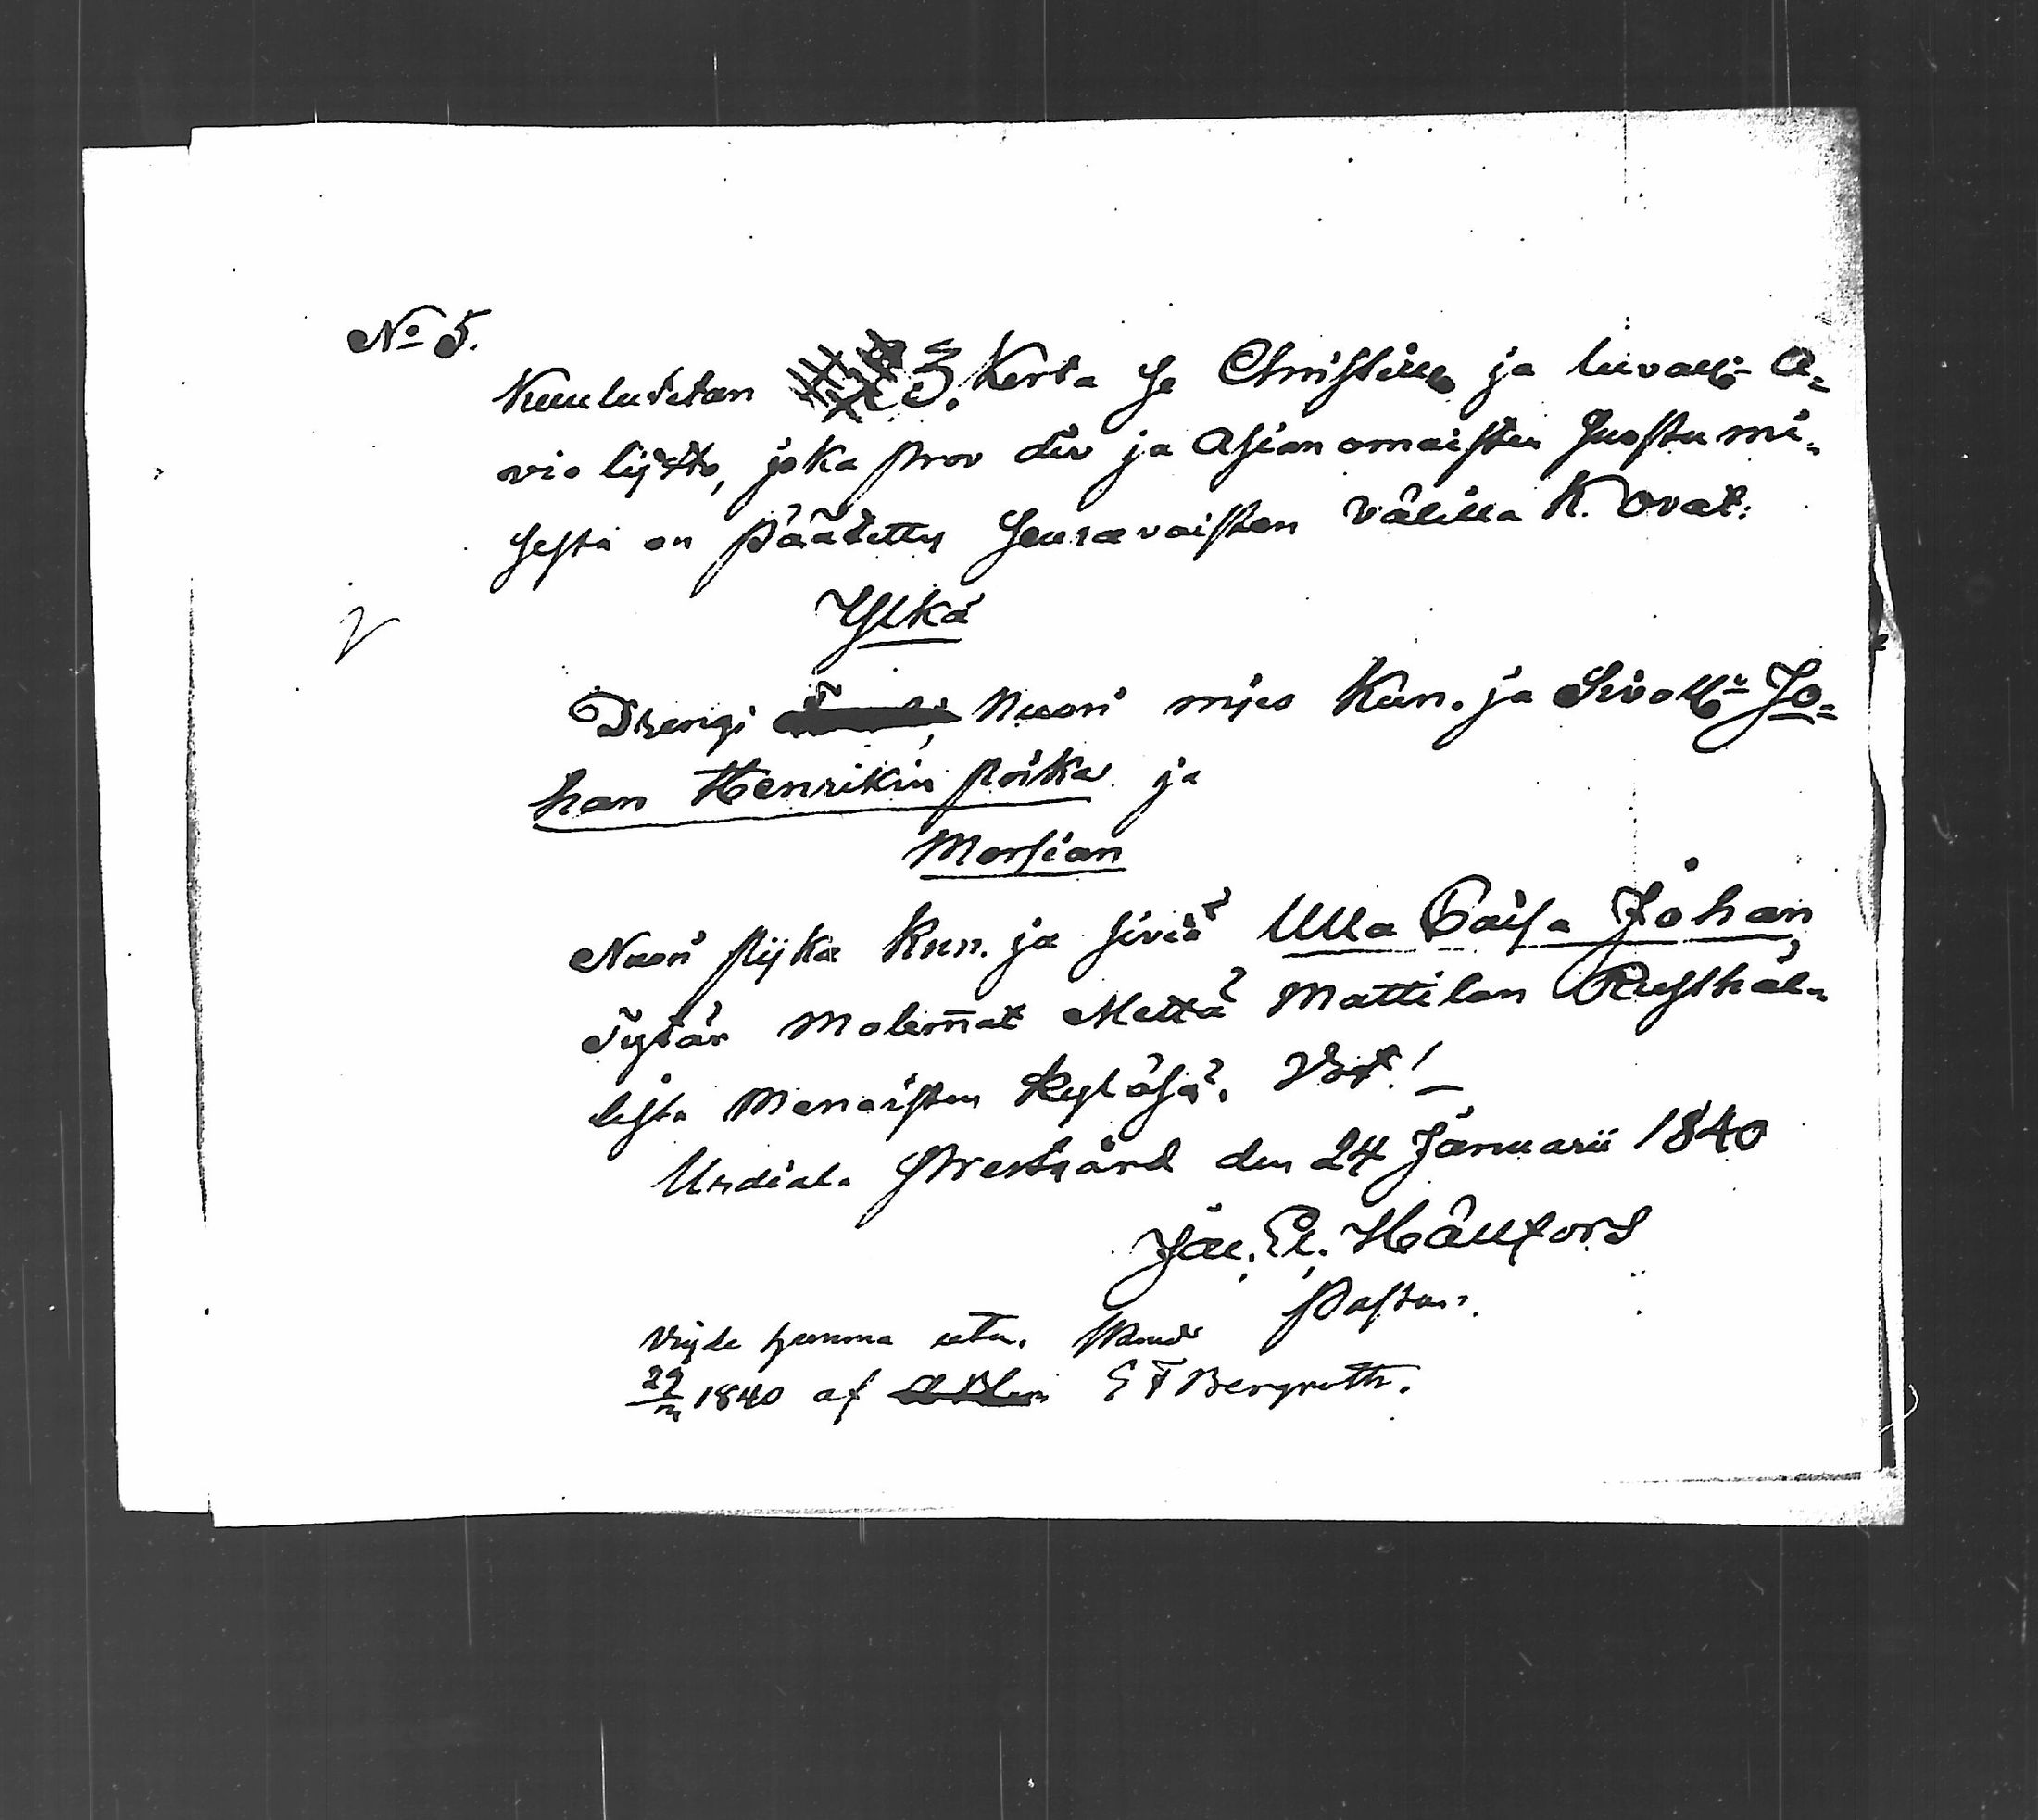 No 5.
Kuulutetan 3. Kerta se Christill: ja luvall: A=
vio lijtto, joka prov div ja Asian omaisten suostumi,
sesta on Päätetty seuravaisten välillä K. Ovat:
Ylkä
Drengi Nuori mies Kun. ja Sivoll: Jo=
han Henrikin poika ja
Morsian
Nuori pijka kun. ja siviä Ulla Caisa Johan
Tytär molem̄at Mettä Mattilan Rusthål=
lista Menoisten kyläsä.
Urdiala Prestgård den 24 Januarii 1840
Jac. El. Hällfors
Pastor.
Vigde hemma
1840 af E F Bergroth.